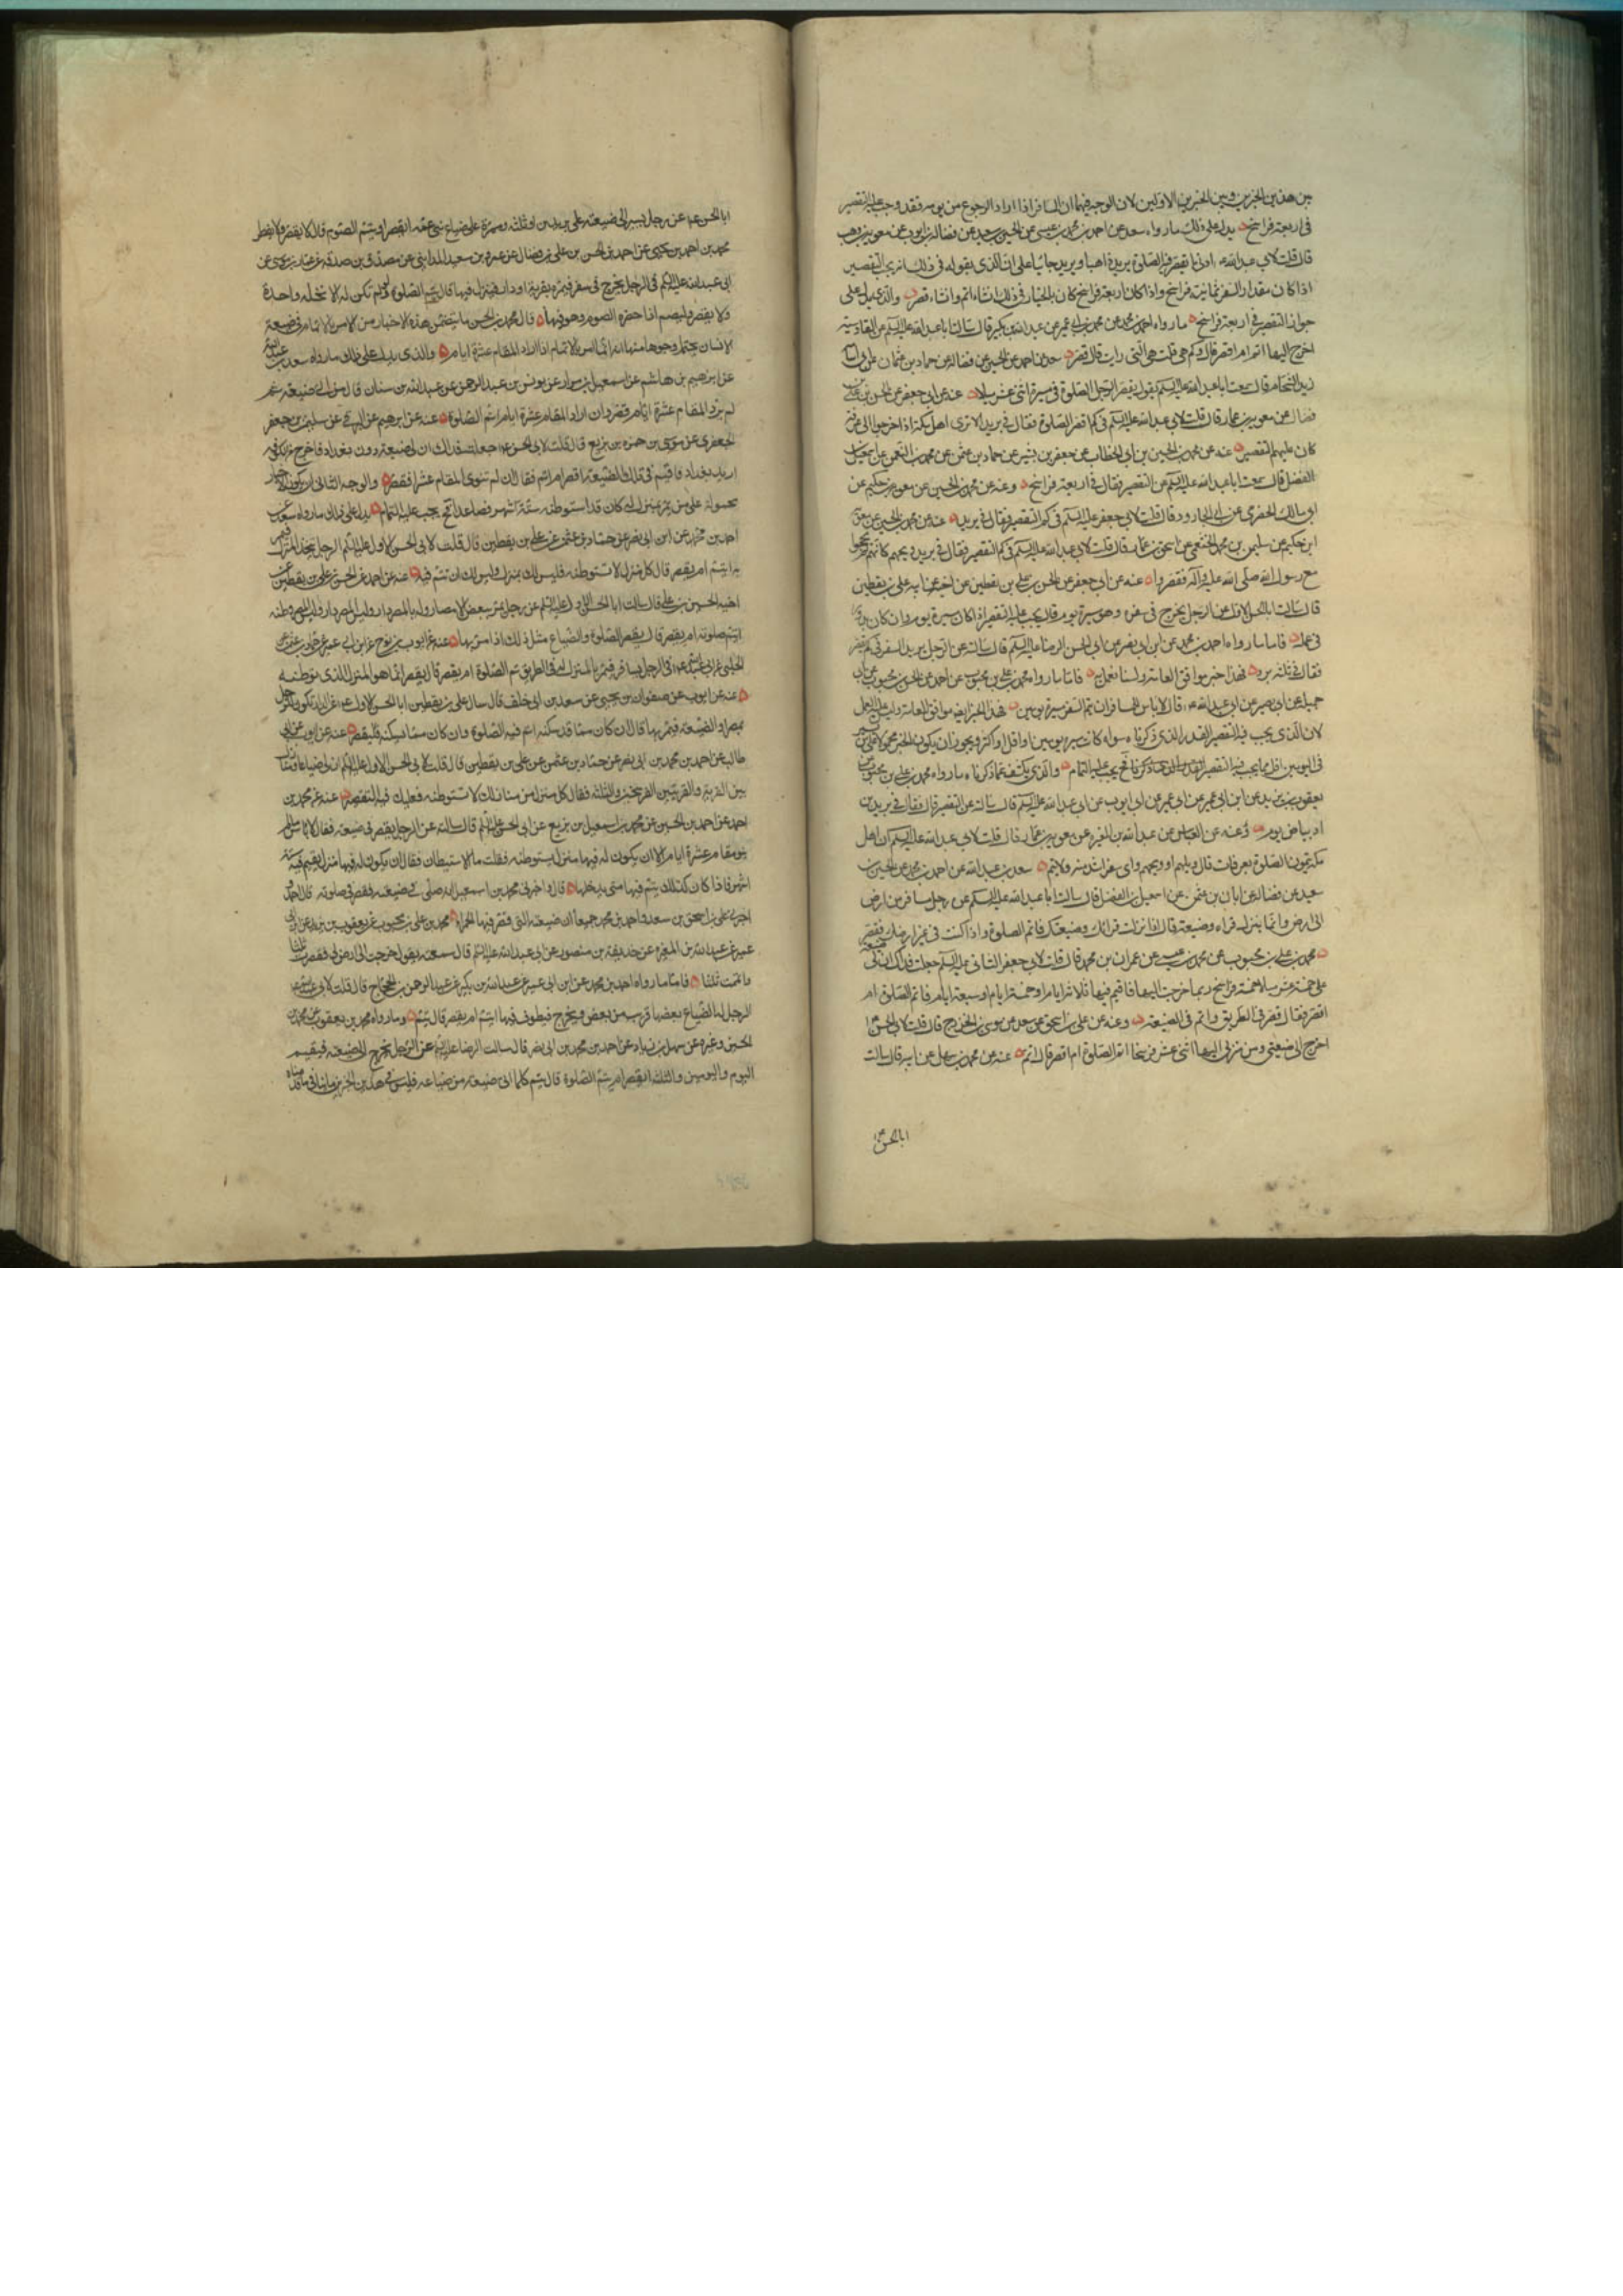 بين هذين الخبرين وبين الخبرين الاولين لان الوجه فيهما ان المسافر اذا اراد الرجوع من يومه فقد وجب عليه التقصير
في اربعة فراسخ يدل على ذلك ما رواه سعد عن احمد بن محمد بن عيسى عن الحسين بن سعيد عن فضالة بن ايوب عن معوية بن وهب
قال قلت لابي عبد الله ادنى ما يقصر فيه الصلوة بريد ذاهبا وبريد جائيا على ان الذي نقوله في ذلك انه يجب التقصير
اذا كان مقدار السفر ثمانية فراسخ واذا كان اربعة فراسخ كان بالخيار في ذلك ان شاء اتم وان شاء قصر والذي يدل على
جواز التقصير في اربعة فراسخ ما رواه احمد بن محمد عن محمد بن ابي عمير عن عبد الله بن بكير قال سالت ابا عبد الله عليه السلم عن القادسية
اخرج اليها اتم ام اقصر قال وكم هي قلت هي التي رايت قال قصر سعد عن احمد عن الحسين عن فضالة عن حماد بن عثمان عن ابي اسامة
زيد الشحام قال سمعت ابا عبد الله عليه السلم يقول يقصر الرجل الصلوة في مسيرة اثني عشر ميلا عنه عن ابي جعفر عن الحسن بن علي بن
فضال عن معوية بن عمار قال قلت لابي عبد الله عليه السلم في كم اقصر الصلوة فقال في بريد الا ترى اهل مكة اذا خرجوا الى عرفة
كان عليهم التقصير عنه عن محمد بن الحسين بن ابي الخطاب عن جعفر بن بشير عن حماد بن عثمن عن محمد بن النعمن عن اسمعيل بن
الفضل قال سمعت ابا عبد الله عليه السلم عن التقصير فقال في اربعة فراسخ وعنه عن محمد بن الحسين عن معوية بن حكيم عن
ابي مالك الحضرمي عن ابي الجارود قال قلت لابي جعفر عليه السلم في كم التقصير فقال في بريد عنه عن محمد بن الحسين عن معوية
ابن حكيم عن سليمن بن محمد الخثعمي عن اسحق بن عمار قال قلت لابي عبد الله عليه السلم في كم التقصير فقال في بريد ويحهم كانهم لم يحجوا
مع رسول الله صلى الله عليه وآله فقصروا عنه عن ابي جعفر عن الحسن بن علي بن يقطين عن اخيه عن ابيه علي بن يقطين
قال سالت ابا الحسن الاول عن الرجل يخرج في سفره وهو مسيرة يوم قال يجب عليه التقصير اذا كان مسيرة يوم وان كان يدور
في عمله فاما ما رواه احمد بن محمد عن ابن ابي نصر عن ابي الحسن الرضا عليه السلم قال سالته عن الرجل يريد السفر في كم يقصر
فقال في ثلثة برد فهذا خبر موافق للعامة ولسنا نعمل به فاما ما رواه محمد بن علي بن محبوب عن احمد عن الحسن بن محبوب عن ابي
جميلة عن ابي بصير عن ابي عبد الله قال لا باس للمسافر ان يتم السفر مسيرة يومين فهذا الخبر ايضا موافق للعامة وليس عليه العمل
لان الذي يجب فيه التقصير القدر الذي ذكرناه سواء كانت مسير يومين او اقل او اكثر ويجوز ان يكون الخبر محمولا على من يسير
في اليومين اقل مما يجب فيه التقصير ذكرنا فح يجب عليه التمام والذي يكشف عما ذكرناه ما رواه محمد بن علي بن محبوب عن
يعقوب بن يزيد عن ابن ابي عمير عن ابي ايوب عن ابي عبد الله عليه السلم قال سالته عن التقصير قال فقال في بريدين
او بياض يوم وعنه عن العباس عن عبد الله بن المغيرة عن معوية بن عمار قال قلت لابي عبد الله عليه السلم ان اهل
مكة يتمون الصلوة بعرفات قال ويلهم او ويحهم واي سفر اشد منه ولا تتم سعد بن عبد الله عن احمد بن محمد عن الحسين بن
سعيد عن فضالة عن ابان بن عثمن عن اسمعيل بن الفضل قال سالت ابا عبد الله عليه السلم عن رجل سافر من ارض
الى ارض وانما ينزل قراه وضيعته قال اذا نزلت قراك وضيعتك فاتم الصلوة واذا كنت في غير ارضك فقصر
محمد بن علي بن محبوب عن محمد بن عيسى عن عمران بن محمد قال قلت لابي جعفر الثاني عليه السلم جعلت فداك ان لي ضيعة
على خمسة عشر ميلا خمسة فراسخ ربما خرجت اليها فاقيم فيها ثلاثة ايام او خمسة ايام او سبعة ايام فاتم الصلوة ام
اقصر فقال قصر في الطريق واتم في الضيعة وعنه عن علي بن اسحق عن سعد عن موسى بن الخزرج قال قلت لابي الحسن
اخرج الى ضيعتي ومن منزلي اليها اثني عشر فرسخا اتم الصلوة ام اقصر قال اتم عنه عن محمد بن سهل عن ابيه قال سالت
ابا الحسن
ابا الحسن عن رجل يسير الى ضيعته على بريدين او ثلثة وممره على ضياع بني عمه ايقصر او يتم الصوم قال لا يقصر ولا يفطر
محمد بن احمد بن يحيى عن احمد بن الحسن بن علي بن فضال عن عمرو بن سعيد المدايني عن مصدق بن صدقه عن عمار بن موسى عن
ابي عبد الله عليه السلم في الرجل يخرج في سفر فيمر بقرية او دار فينزل فيها قال يتم الصلوة ولو لم تكن له الا نخلة واحدة
ولا يقصر وليصم اذا حضره الصوم وهو فيها قال محمد بن الحسن ما يتضمن هذه الاخبار من الامر بالاتمام في ضيعة
الانسان يحتمل وجوها منها انه انما امر بالاتمام اذا اراد المقام عشرة ايام والذي يدل على ذلك ما رواه سعد بن عبد الله
عن ابرهيم بن هاشم عن اسمعيل بن مرار عن يونس بن عبد الرحمن عن عبد الله بن سنان قال من اتى ضيعته ثم
لم يرد المقام عشرة ايام قصر وان اراد المقام عشرة ايام اتم الصلوة عنه عن ابرهيم عن البرقي عن سليمن بن جعفر
الجعفري عن موسى بن حمزه بن بزيع قال قلت لابي الحسن جعلت فداك ان لي ضيعة دون بغداد فاخرج من الكوفة
اريد بغداد فاقيم في تلك الضيعة اقصر ام اتم فقال ان لم تنو المقام عشرا فقصر والوجه الثاني ان يكون الاخبار
محمولة على من يمر بمنزل له كان قد استوطنه ستة اشهر فصاعدا فح يجب عليه التمام يدل على ذلك ما رواه سعد عن
احمد بن محمد عن ابن ابي نصر عن حماد بن عثمن عن علي بن يقطين قال قلت لابي الحسن الاول عليه السلم الرجل يتخذ المنزل فيمر
به ايتم ام يقصر قال كل منزل لا تستوطنه فليس لك بمنزل وليس لك ان تتم فيه عنه عن احمد عن الحسن بن علي بن يقطين عن
اخيه الحسين بن علي قال سالت ابا الحسن الاول عليه السلم عن رجل يمر ببعض الامصار وله بالمصر دار وليس المصر وطنه
ايتم صلوته ام يقصر قال يقصر الصلوة والضياع مثل ذلك اذا مر بها عنه عن ايوب بن نوح عن ابن ابي عمير عن حماد بن عثمن عن
الحلبي عن ابي عبد الله في الرجل يسافر فيمر بالمنزل له في الطريق يتم الصلوة ام يقصر قال يقصر انما هو المنزل الذي توطنه
عنه عن ايوب عن صفوان بن يحيى عن سعد بن ابي خلف قال سال علي بن يقطين ابا الحسن الاول عن الدار تكون للرجل
بمصر او الضيعة فيمر بها قال ان كان مما قد سكنه اتم فيه الصلوة وان كان مما لم يسكنه فليقصر عنه عن ايوب عن ابي
طالب عن احمد بن محمد بن ابي نصر عن حماد بن عثمن عن علي بن يقطين قال قلت لابي الحسن الاول عليه السلم ان لي ضياعا ومنازل
بين القرية والقريتين الفرسخين والثلثة فقال كل منزل من منازلك لا تستوطنه فعليك فيه التقصير عنه عن محمد بن
احمد عن احمد بن الحسين عن محمد بن اسمعيل بن بزيع عن ابي الحسن عليه السلم قال سالته عن الرجل يقصر في ضيعته فقال لا باس ما لم
ينو مقام عشرة ايام الا ان يكون له فيها منزل يستوطنه فقلت ما الاستيطان فقال ان يكون له فيها منزل يقيم فيه ستة
اشهر فاذا كان كذلك يتم فيها متى يدخلها قال واخبرني محمد بن اسمعيل انه صلى في ضيعته فقصر في صلوته قال احمد
اخبرني علي بن اسحق بن سعد واحمد بن محمد جميعا ان ضيعته التي قصر فيها الحمراء محمد بن علي بن محبوب عن يعقوب بن يزيد عن ابن ابي
عمير عن عبد الله بن المغيرة عن حذيفة بن منصور عن ابي عبد الله عليه السلم قال سمعته يقول خرجت الى ارض لي فقصرت ثلثا
واتممت ثلثا فاما ما رواه احمد بن محمد عن ابن ابي عمير عن عبد الله بن بكير عن عبد الرحمن بن الحجاج قال قلت لابي عبد الله
الرجل له الضياع بعضها قريب من بعض ويخرج فيطوف فيها ايتم ام يقصر قال يتم وما رواه محمد بن يعقوب عن محمد بن
الحسن وغيره عن سهل بن زياد عن احمد بن محمد بن ابي نصر قال سالت الرضا عليه السلم عن الرجل يخرج الى ضيعته فيقيم
اليوم واليومين والثلثة ايقصر ام يتم الصلوة قال يتم كلما اتى ضيعة من ضياعه فليس في هذين الخبرين ما ينافي ما قدمناه